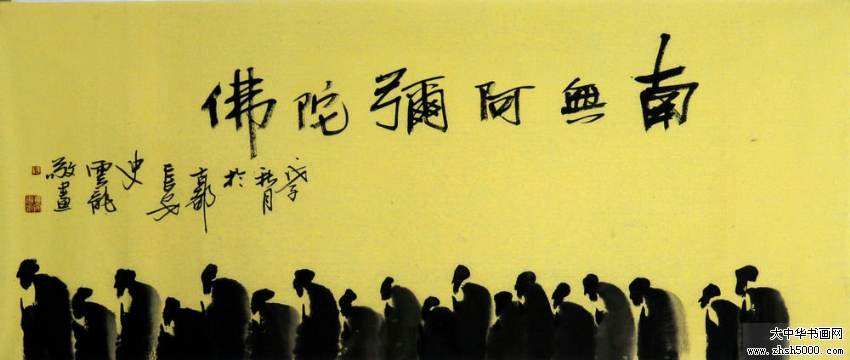 南無阿彌陀佛
戊子秋月於古都長安史雲龍敬畫
大中华书画网
www.zhsh5000.com